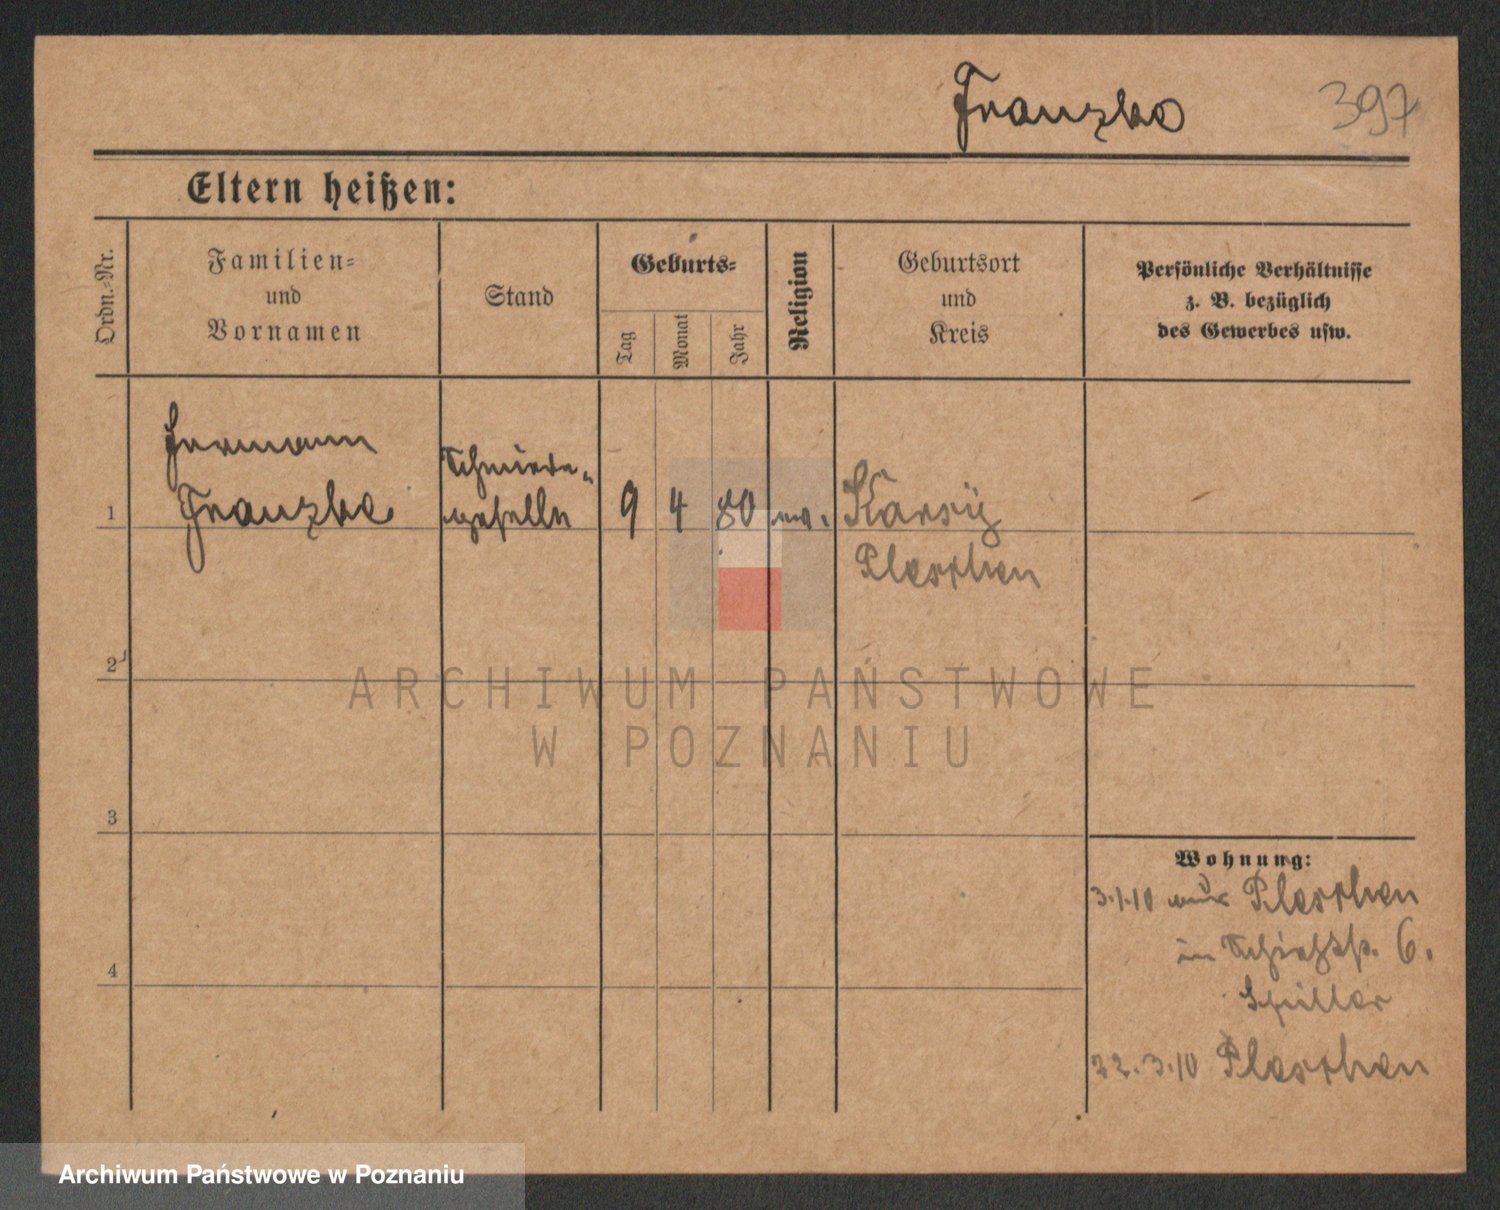 Franzke
397
Eltern heißen:
Ordn.-Nr.
Familien-
und
Vornamen
Stand
Geburts-
Tag
Monat
Jahr
Religion
Geburtsort
und
Kreis
Persönliche Verhältnisse
z. B. bezüglich
des Gewerbes usw.
1
Hermann
Franzke
Schmiede-
geselle
9
4
80
ev.
Karsy
Pleschen
2
3
4
Wohnung:
3.1.10 aus Pleschen
in 6.
22.3.10 Pleschen
ARCHIWUM PAŃSTWOWE
W POZNANIU
Archiwum Państwowe w Poznaniu